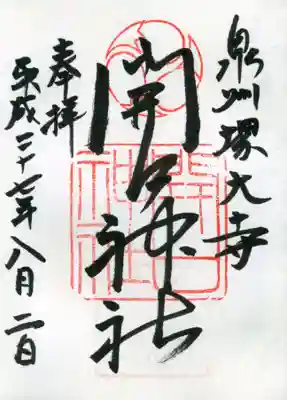 泉州堺大寺
開口神社
奉拝
平成二十七年八月二日
開口神社